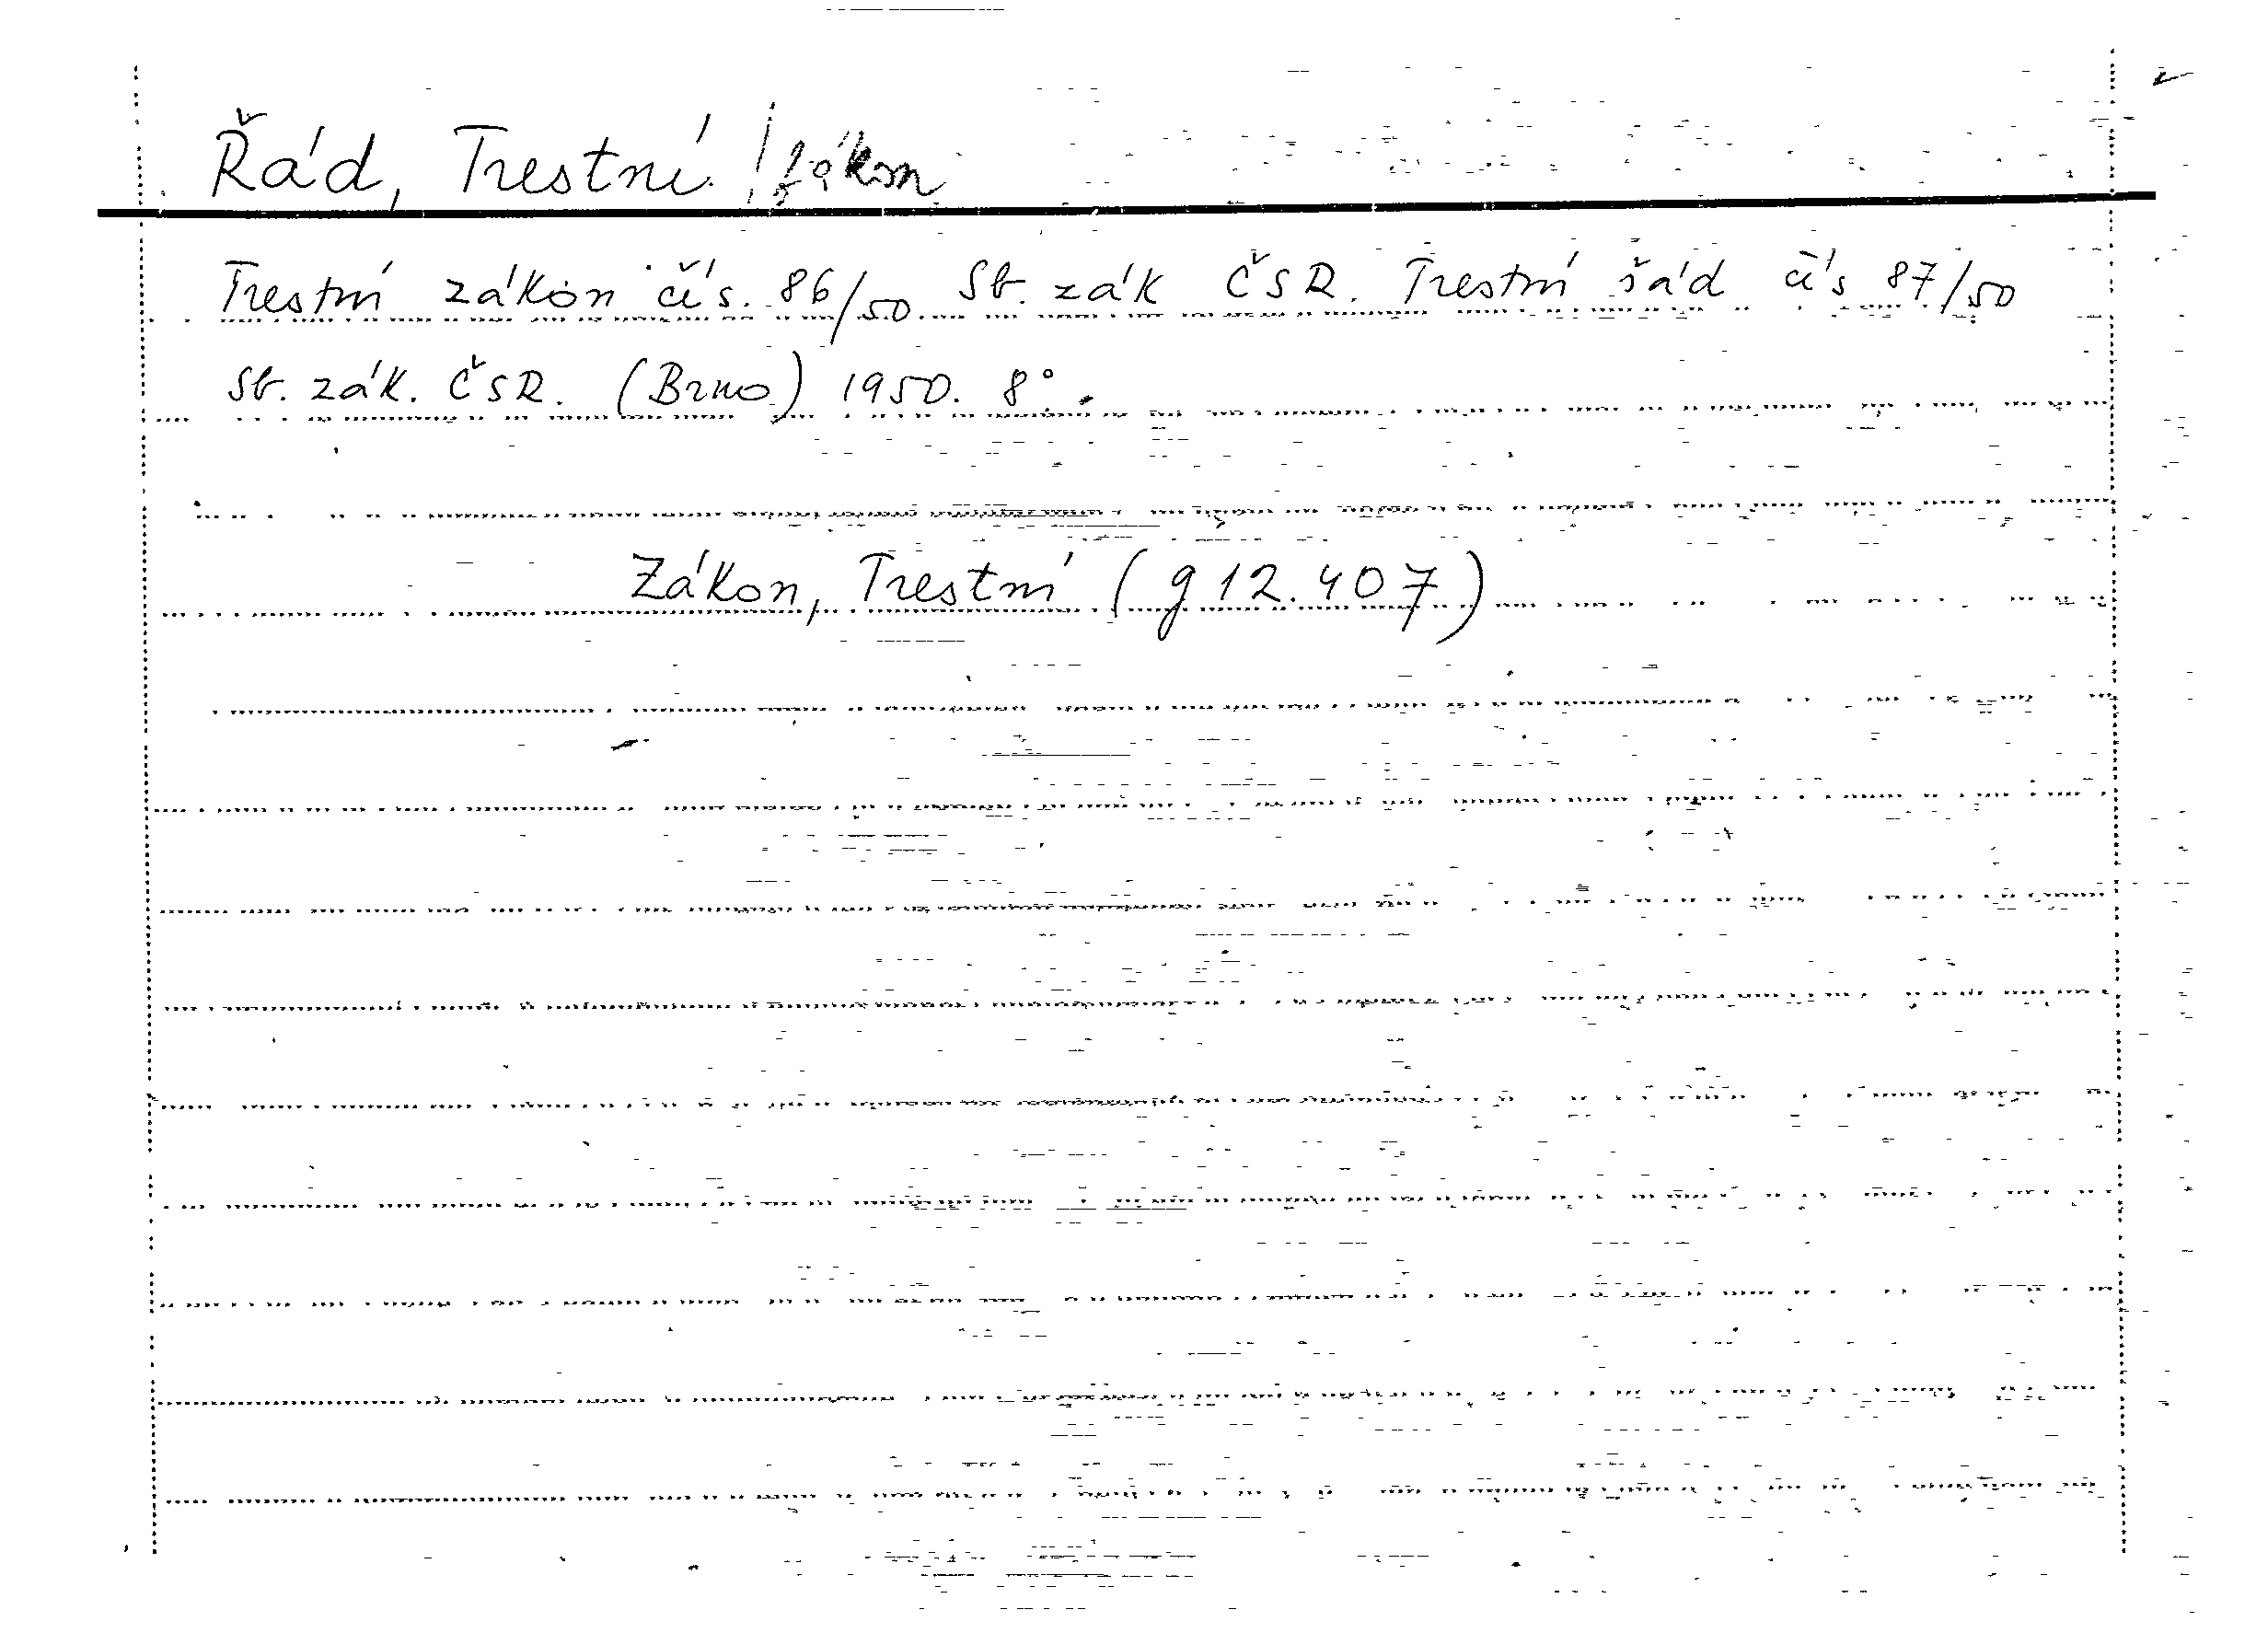 Řád, Trestní / zákon
Trestní zákon čís. 86/50 Sb. zák ČSR. Trestní řád čís 87/50
Sb. zák. ČSR. (Brno) 1950. 8°.
Zákon, Trestní (g 12.407)